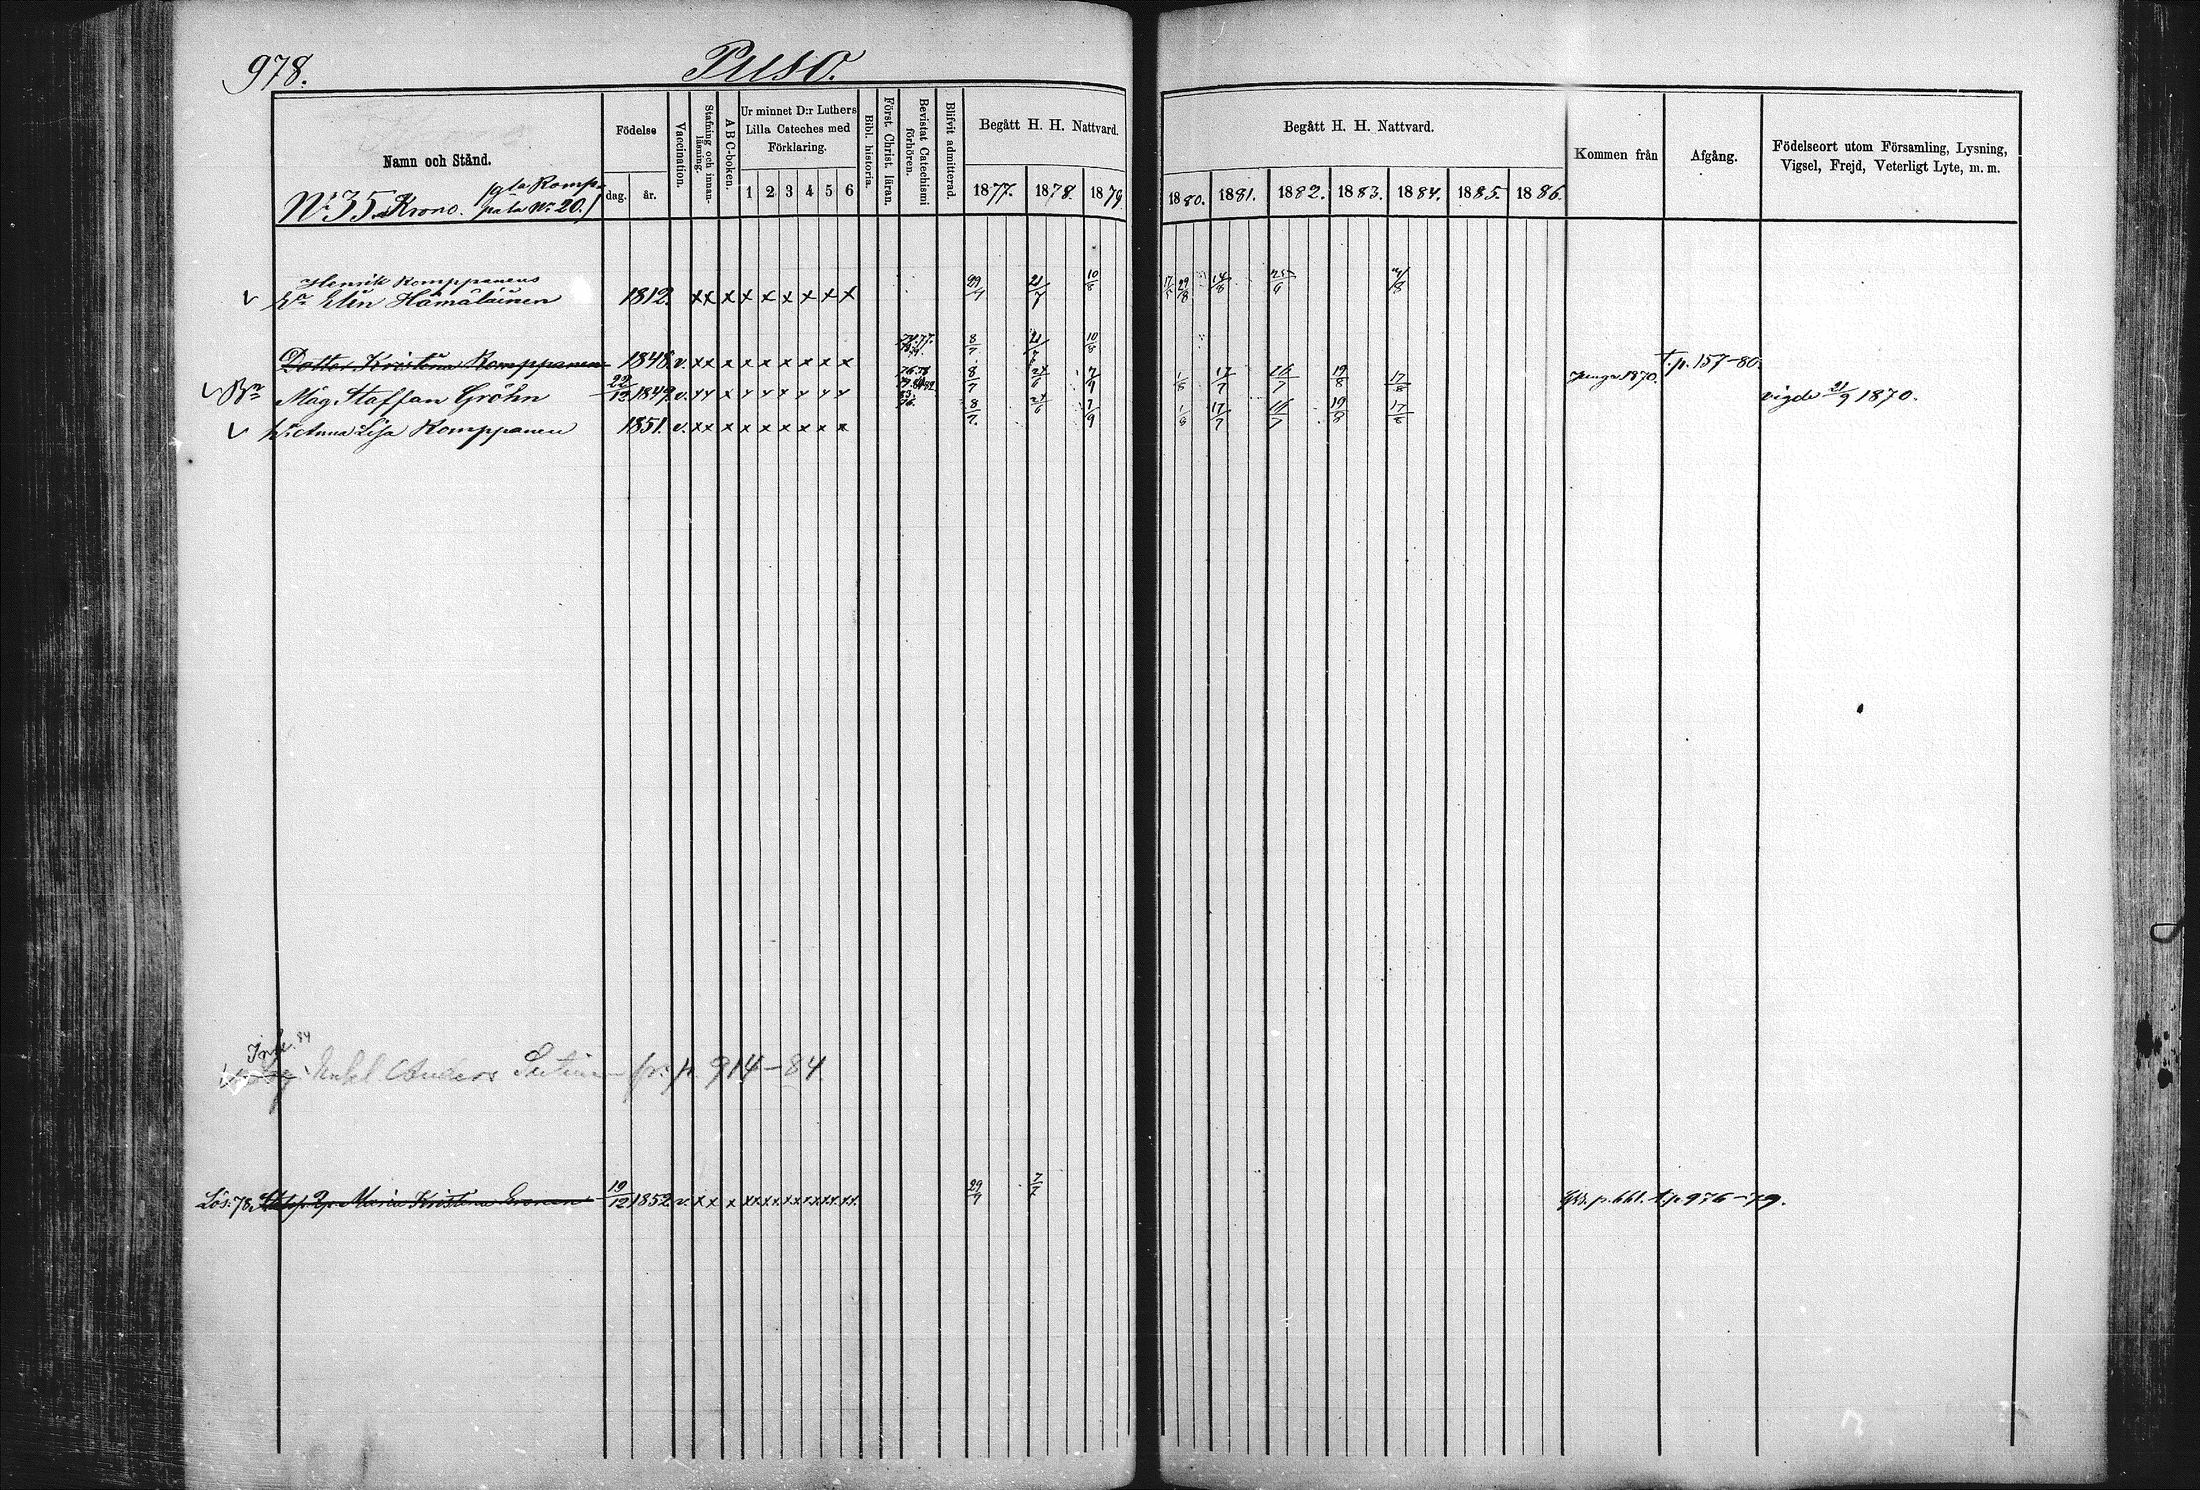 978.
Puso.
Namn och Stånd.
Födelse
dag. år.
Vaccination.
Stafning och innanläsning.
A B C-boken.
Ur minnet D:r Luthers Lilla Cateches med Förklaring.
1 2 3 4 5 6
Bibl. historia.
Först. Christ. läran.
Bevistat Catechismi förhören.
Blifvit admitterad.
Begått H. H. Nattvard.
1877. 1878. 1879
Begått H. H. Nattvard.
1880. 1881. 1882. 1883. 1884. 1885. 1886.
Kommen från
Afgång.
Födelseort utom Församling, Lysning, Vigsel, Frejd, Veterligt Lyte, m. m.
No 35 Krono. Nr 20.
Henrik Komppanens
Elin Hämäläinen 1812. xx x x x x x x x 21/7 10/8 29/8 14/8
Dotter Kristina Komppanen 1848. v. xx x x x x x x x 8/7 10/8 t.p. 157-80.
Måg. Staffan Gröhn 22/12 1849. v. xx x x x x x x x 8/7 7/9 1/8 17/7 19/8 17/8 1870. vigde 21/9 1870.
h. Anna Lisa Komppanen 1851. v. xx x x x x x x x 8/7 7/9 1/8 17/7 19/8
84
Anders fr. p. 914-84.
Lös. 78. Maria Kristina Eronen 19/12 1852 v. xx x xx xx xx xx xx xx 29/9 t.p. 976-79.